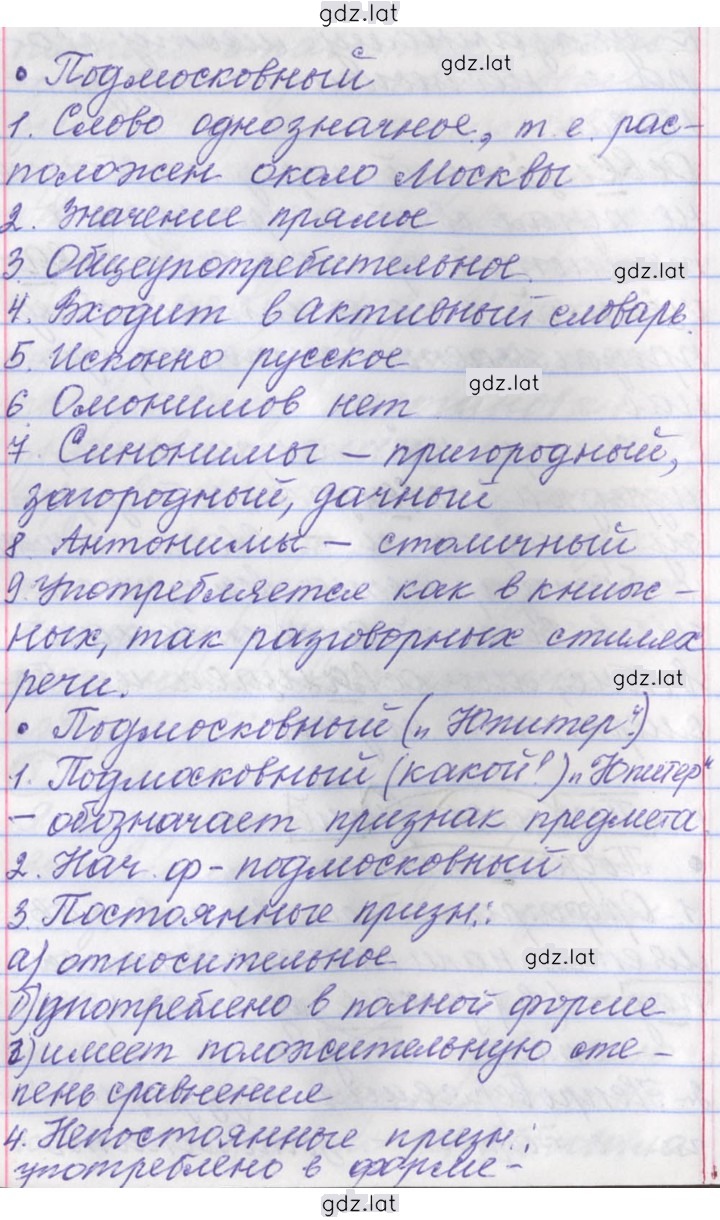 gdz.lat
• Подмосковный с
gdz.lat
1. Слово однозначное, т. е. рас-
положен около Москвы
2. Значение прямое
3. Общеупотребительное.
gdz.lat
4. Входит в активный словарь.
5. Исконно русское
gdz.lat
6 Омонимов нет
7. Синонимы – пригородный,
загородный, дачный
8. Антонимы – столичный
9. Употребляется как в книж-
ных, так разговорных стилях
речи.
gdz.lat
• Подмосковный („Юпитер“)
1. Подмосковный (какой?) „Юпитер“
– обозначает признак предмета
2. Нач. ф – подмосковный
3. Постоянные призн.:
а) относительное
gdz.lat
б) употреблено в полной форме
в) имеет положительную сте-
пень сравнения
4. Непостоянные призн.:
употреблено в форме –
gdz.lat